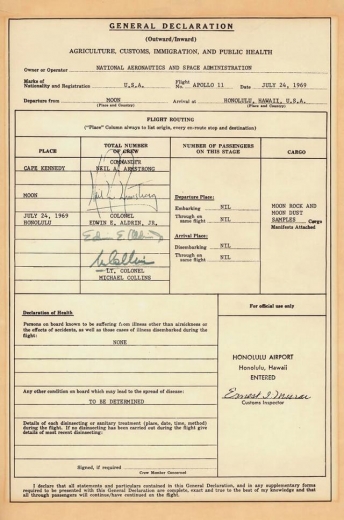 GENERAL DECLARATION
(Outward/Inward)
AGRICULTURE, CUSTOMS, IMMIGRATION, AND PUBLIC HEALTH
Owner or Operator NATIONAL AERONAUTICS AND SPACE ADMINISTRATION
Marks of Nationality and Registration U.S.A. Flight No. APOLLO 11 Date JULY 24, 1969
Departure from MOON Arrival at HONOLULU, HAWAII, U.S.A.
(Place and Country) (Place and Country)
FLIGHT ROUTING
("Place" Column always to list origin, every en-route stop and destination)
PLACE
TOTAL NUMBER OF CREW
NUMBER OF PASSENGERS ON THIS STAGE
CARGO
CAPE KENNEDY
COMMANDER
NEIL A. ARMSTRONG
MOON
JULY 24, 1969
HONOLULU
COLONEL
EDWIN E. ALDRIN, JR.
LT. COLONEL
MICHAEL COLLINS
Departure Place:
Embarking NIL
Through on same flight NIL
Arrival Place:
Disembarking NIL
Through on same flight NIL
MOON ROCK AND
MOON DUST
SAMPLES Cargo
Manifests Attached
Declaration of Health
Persons on board known to be suffering from illness other than airsickness or
the effects of accidents, as well as those cases of illness disembarked during the
flight:
NONE
Any other condition on board which may lead to the spread of disease:
TO BE DETERMINED
Details of each disinsecting or sanitary treatment (place, date, time, method)
during the flight. If no disinsecting has been carried out during the flight give
details of most recent disinsecting:
Signed, if required
Crew Member Concerned
For official use only
HONOLULU AIRPORT
Honolulu, Hawaii
ENTERED
Customs Inspector
I declare that all statements and particulars contained in this General Declaration, and in any supplementary forms
required to be presented with this General Declaration are complete, exact and true to the best of my knowledge and that
all through passengers will continue/have continued on the flight.